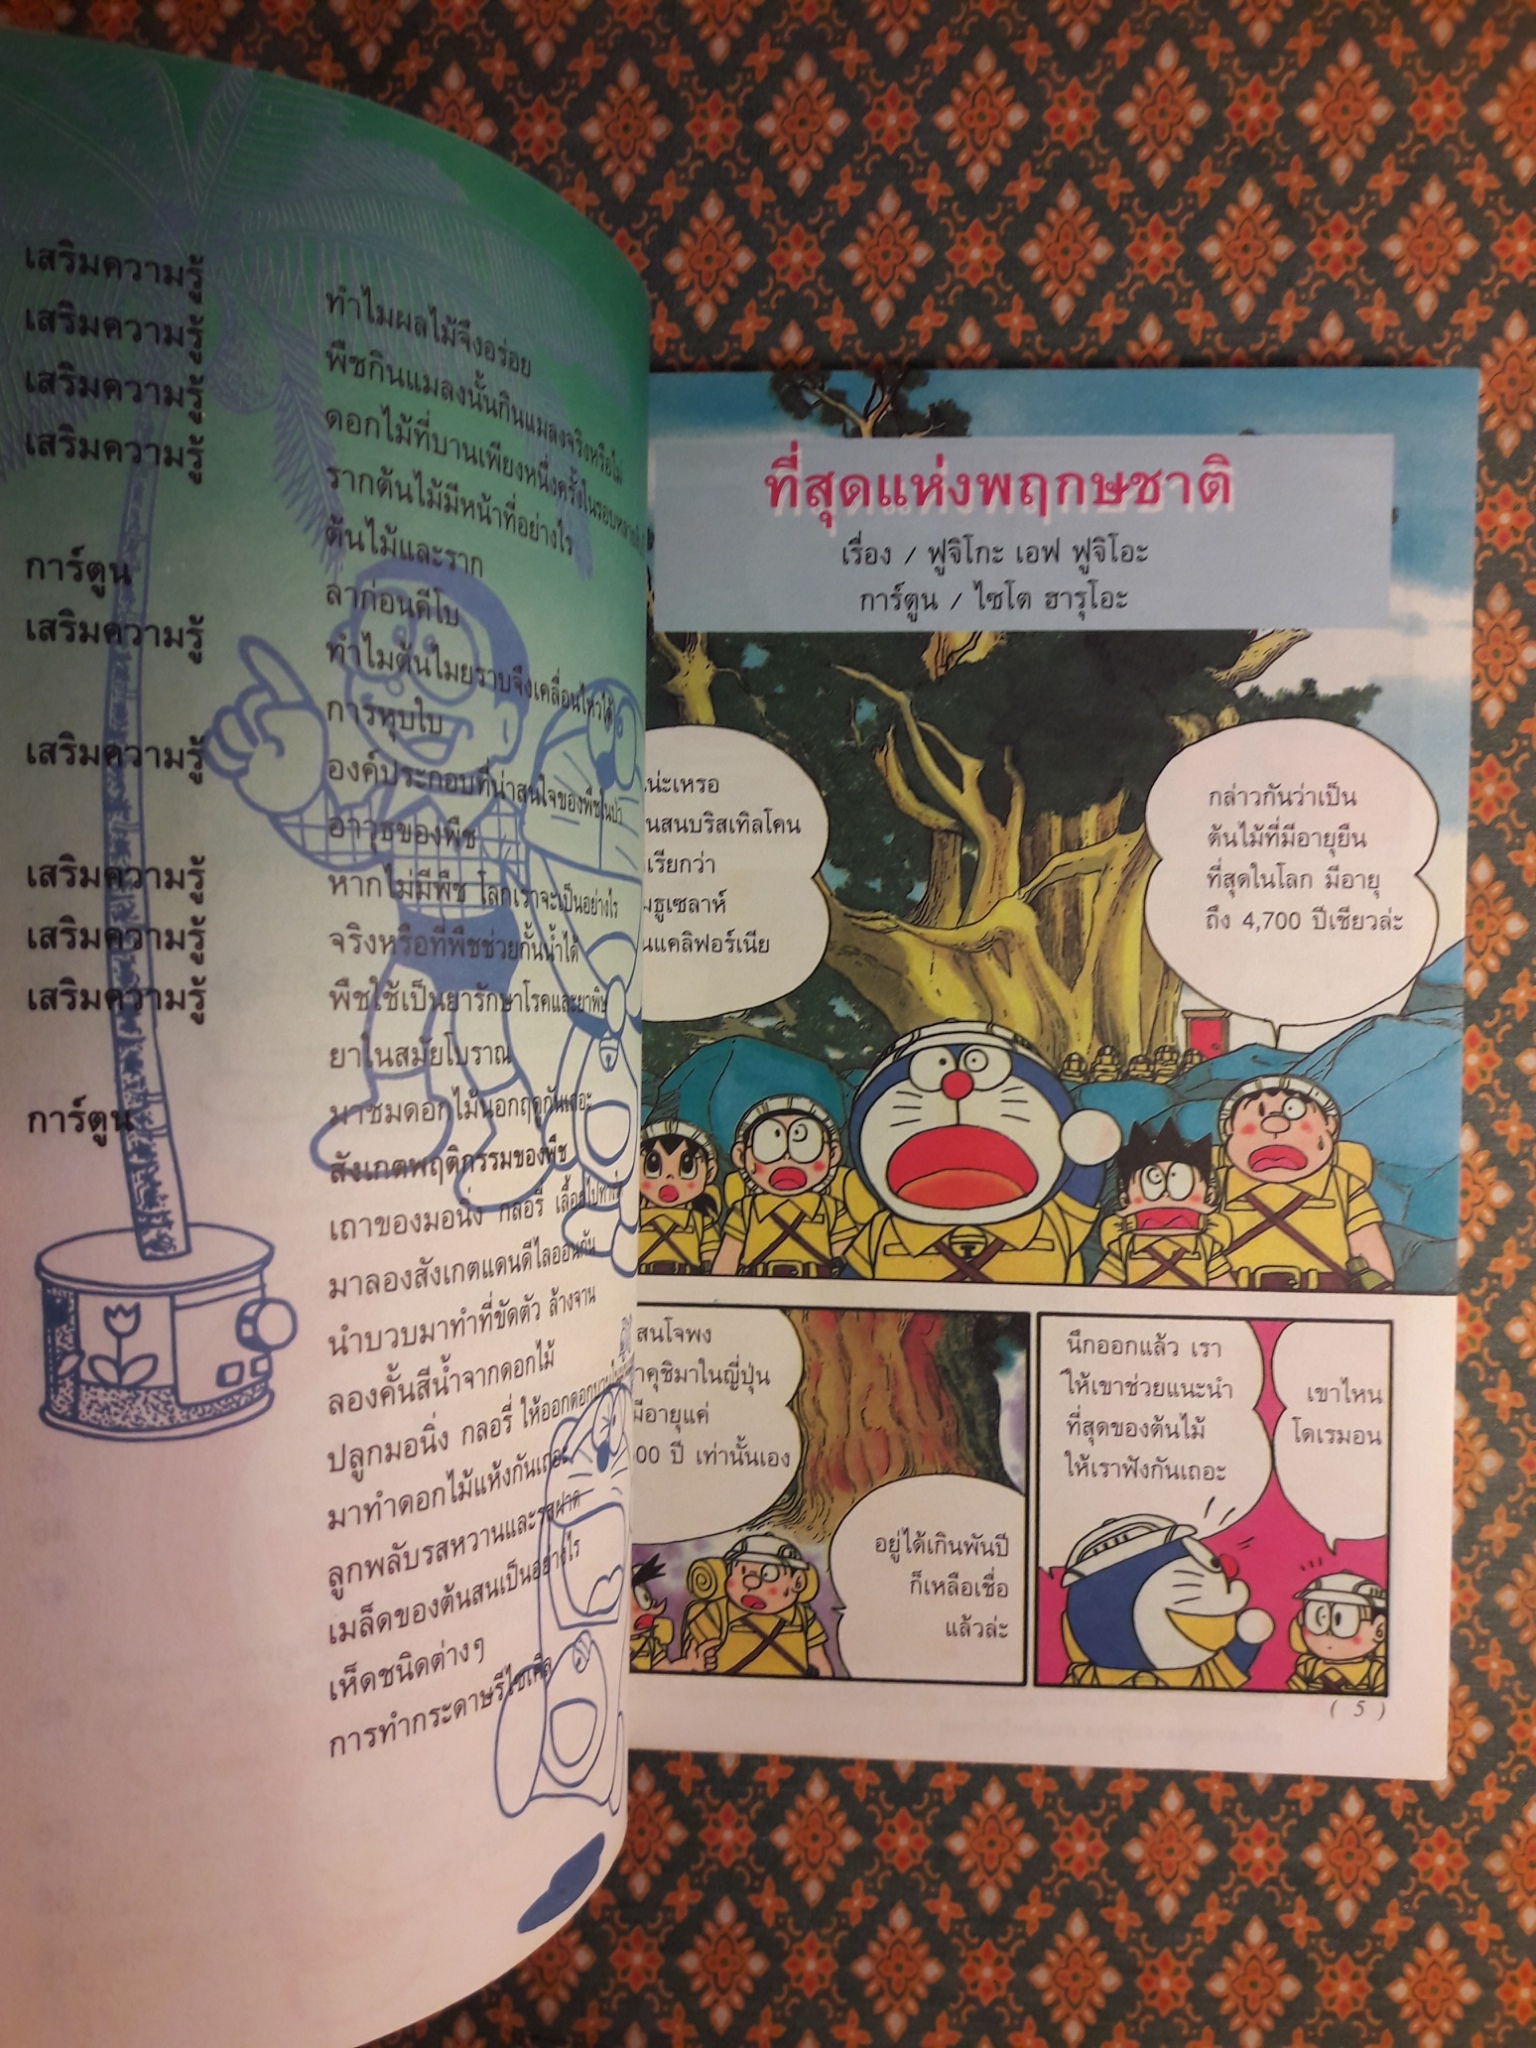 เสริมความรู้
ทำไมผลไม้จึงอร่อย
เสริมความรู้
พืชกินแมลงนั้นกินแมลงจริงหรือไม่
เสริมความรู้
ดอกไม้ที่บานเพียงหนึ่งครั้งในรอบ
เสริมความรู้
รากต้นไม้มีหน้าที่อย่างไร
ต้นไม้และราก
การ์ตูน
ลาก่อนคีโบ
เสริมความรู้
ทำไมต้นไมยราบจึงเคลื่อนไหวได้
การหุบใบ
เสริมความรู้
องค์ประกอบที่น่าสนใจของพืชในป่า
อาวุธของพืช
เสริมความรู้
หากไม่มีพืช โลกเราจะเป็นอย่างไร
เสริมความรู้
จริงหรือที่พืชช่วยกั้นน้ำได้
เสริมความรู้
พืชใช้เป็นยารักษาโรคและยาพิษ
ยาในสมัยโบราณ
การ์ตูน
มาชมดอกไม้นอกฤดูกันเถอะ
สังเกตพฤติกรรมของพืช
เถาของมอนิ่ง กลอรี่ เลื้อยไป
มาลองสังเกตแดนดีไลออนกัน
นำบวบมาทำที่ขัดตัว ล้างจาน
ลองคั้นสีน้ำจากดอกไม้
ปลูกมอนิ่ง กลอรี่ ให้ออกดอก
มาทำดอกไม้แห้งกันเถอะ
ลูกพลับรสหวานและรสฝาด
เมล็ดของต้นสนเป็นอย่างไร
เห็ดชนิดต่างๆ
การทำกระดาษรีไซเคิล
ที่สุดแห่งพฤกษชาติ
เรื่อง / ฟูจิโกะ เอฟ ฟูจิโอะ
การ์ตูน / ไซโต ฮารุโอะ
น่ะเหรอ
นสนบริสเทิลโคน
เรียกว่า
มธูเซลาห์
นแคลิฟอร์เนีย
กล่าวกันว่าเป็น
ต้นไม้ที่มีอายุยืน
ที่สุดในโลก มีอายุ
ถึง 4,700 ปีเชียวล่ะ
สนโจพง
าคุชิมาในญี่ปุ่น
มีอายุแค่
00 ปี เท่านั้นเอง
อยู่ได้เกินพันปี
ก็เหลือเชื่อ
แล้วล่ะ
นึกออกแล้ว เรา
ให้เขาช่วยแนะนำ
ที่สุดของต้นไม้
ให้เราฟังกันเถอะ
เขาไหน
โดเรมอน
( 5 )